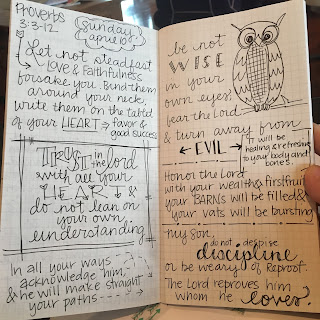 Proverbs
3:3-12
Sunday
april 10
Let not steadfast
LOVE & Faithfulness
forsake you. Bind them
around your neck,
write them on the tablet
of your HEART → favor &
good success
TRUST in the Lord
with all your
HEART &
do not lean on
your own
understanding
In all your ways
acknowledge him,
& he will make straight
your paths
be not
WISE
in your
own eyes;
fear the Lord
& turn away from
EVIL
It will be
healing & refreshing
to your body and
bones.
Honor the Lord
with your wealth & firstfruit
your BARNS will be filled &
your vats will be bursting
My son,
do not despise
discipline
or be weary of Reproof.
The Lord reproves him
whom he loves.